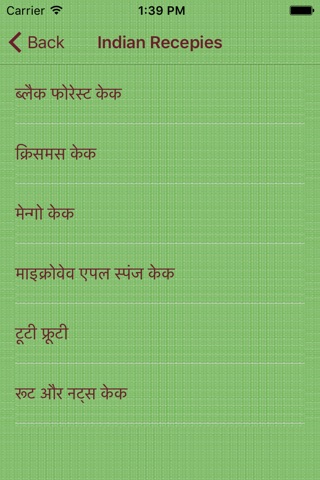 Carrier 1:39 PM
Back Indian Recepies
ब्लैक फोरेस्ट केक
क्रिसमस केक
मेन्गो केक
माइक्रोवेव एपल स्पंज केक
टूटी फ्रूटी
रूट और नट्स केक